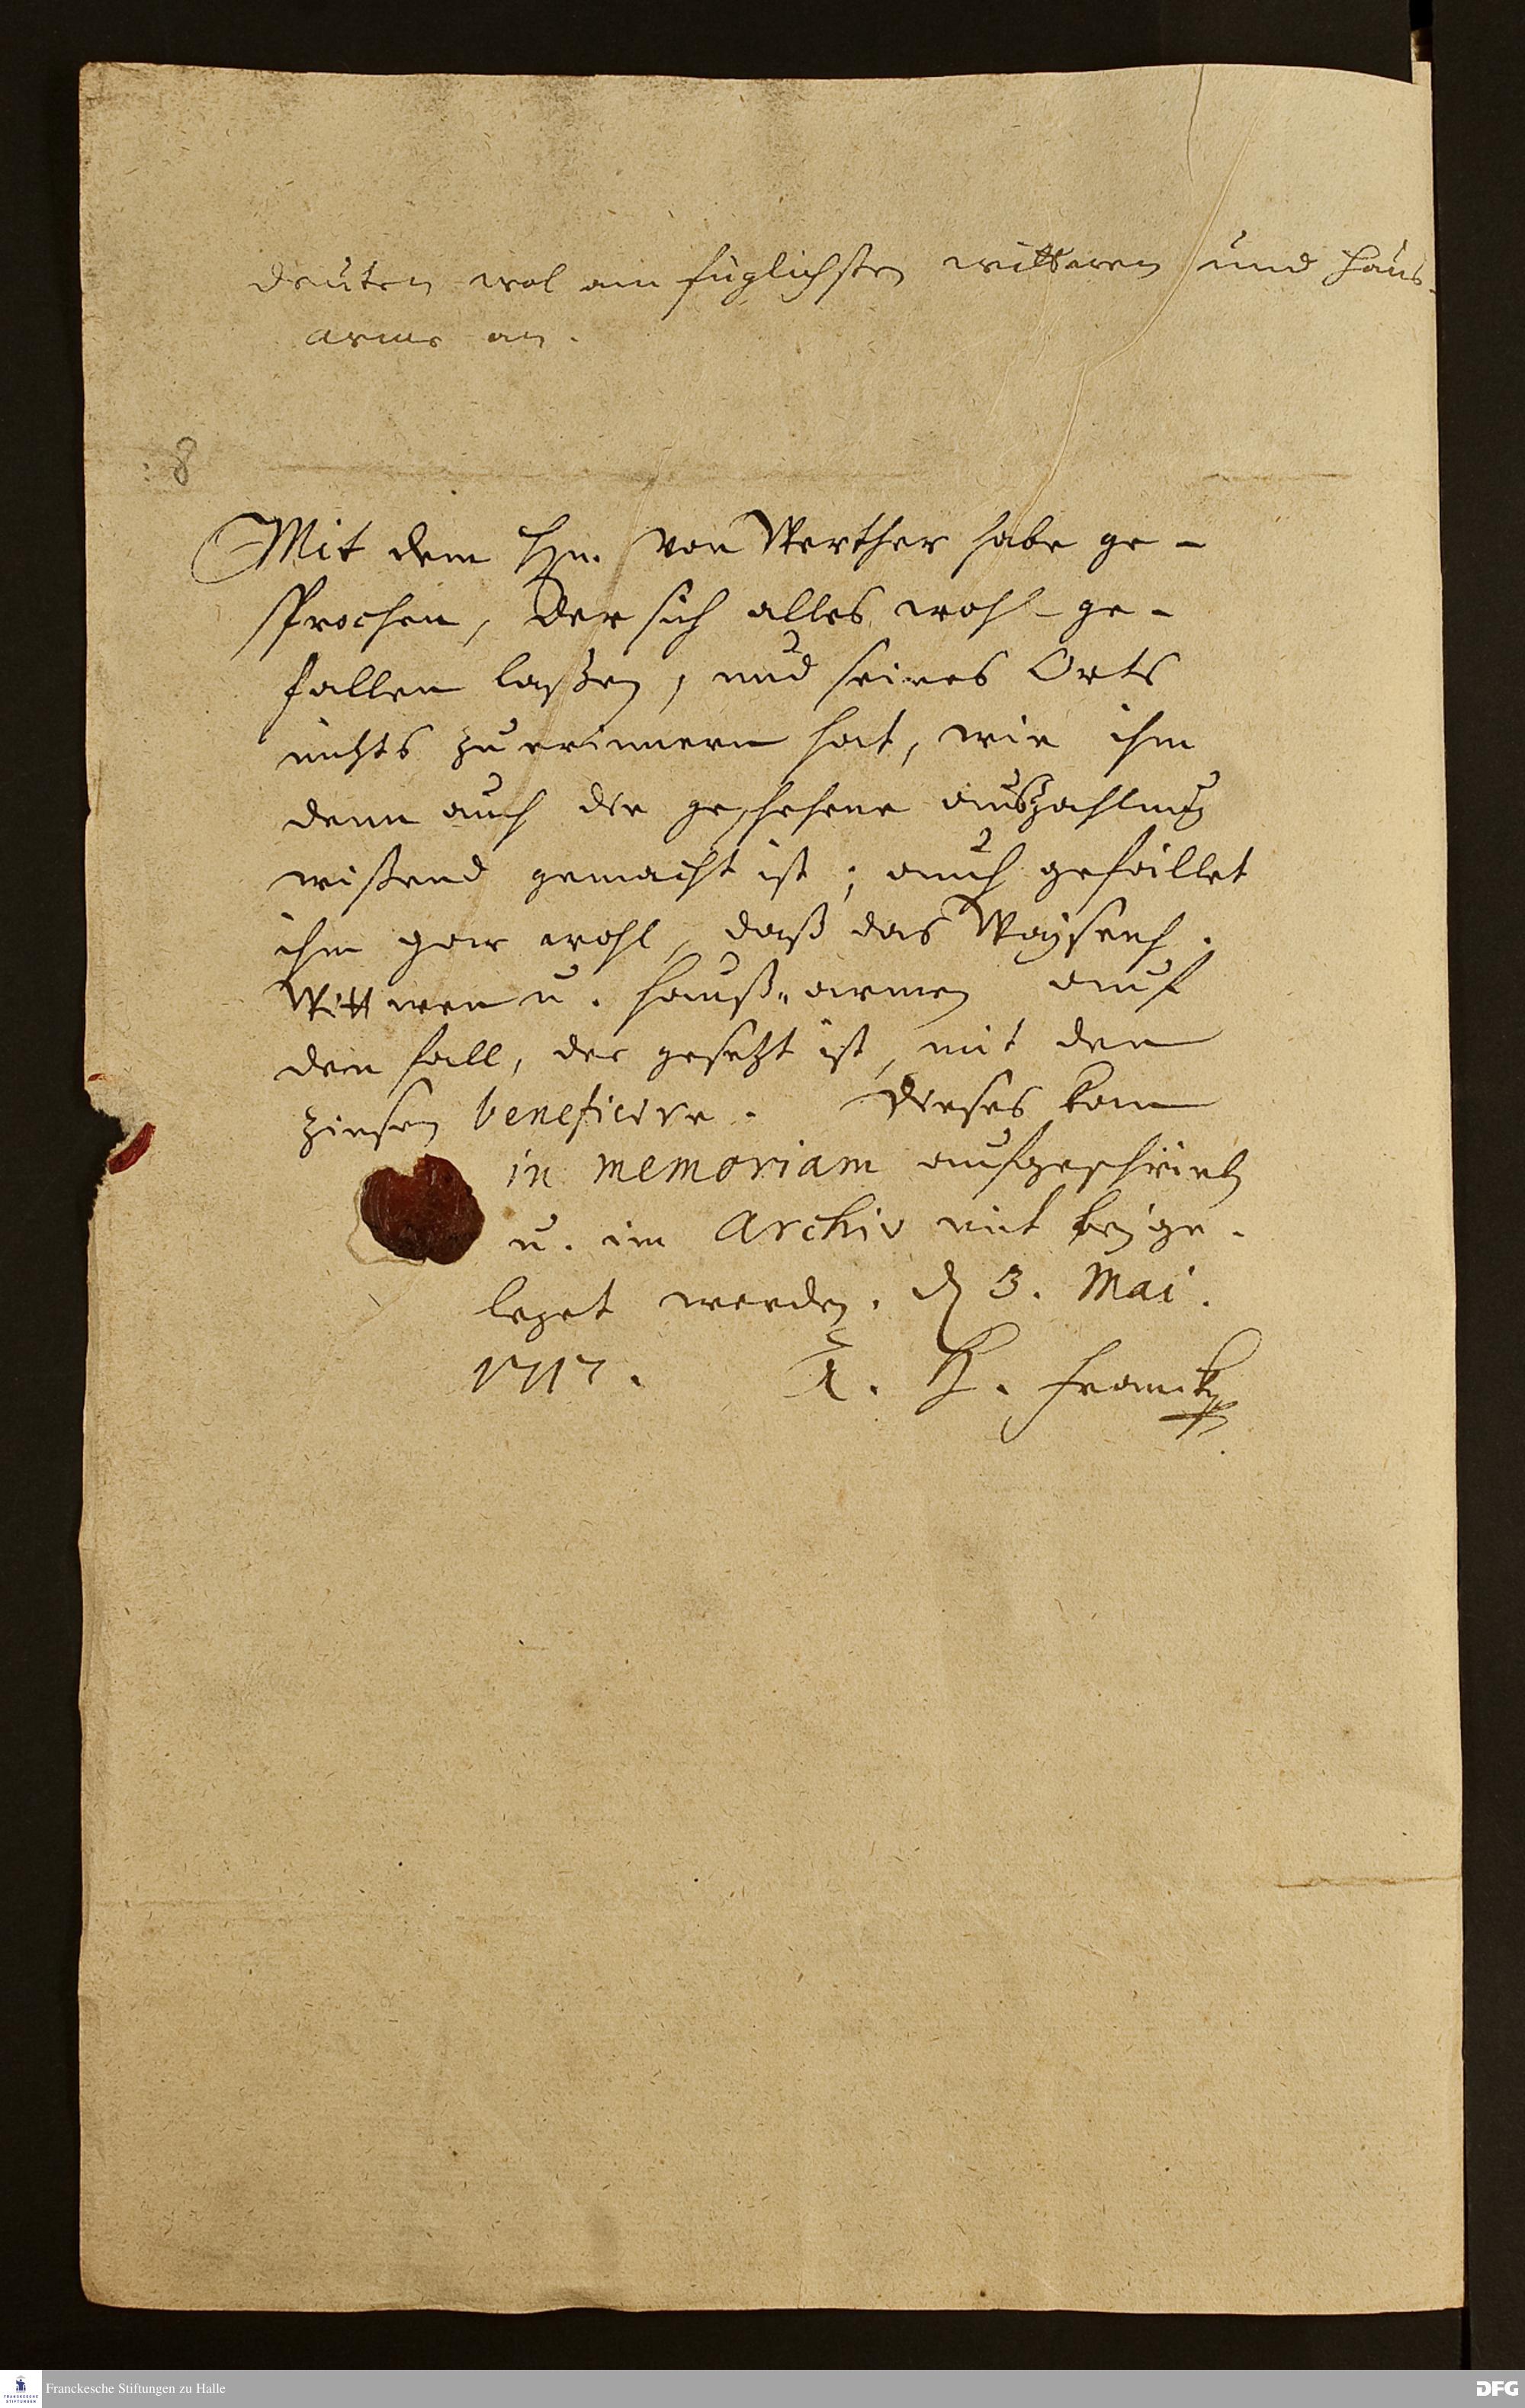 deuten wol am füglichsten wittwen und haus-
arme an.
8
Mit dem Hn. von Werther habe ge-
sprochen, der sich alles wohl ge-
fallen laßen, und seines Orts
nichts zu erinnern hat, wie ihm
denn auch die geschehene auszahlung
wißend gemacht ist; auch gefället
ihm gar wohl, daß das Waysenh.
Wittwen u. hauß-armen auf
den fall, der gesetzt ist, mit den
zinsen beneficire. Dieses kann
in memoriam aufgeschrieben
u. im Archiv mit beyge-
leget werden. d 3. Mai.
1717. A. H. Francke
Franckesche Stiftungen zu Halle
FRANCKESCHE
STIFTUNGEN
DFG